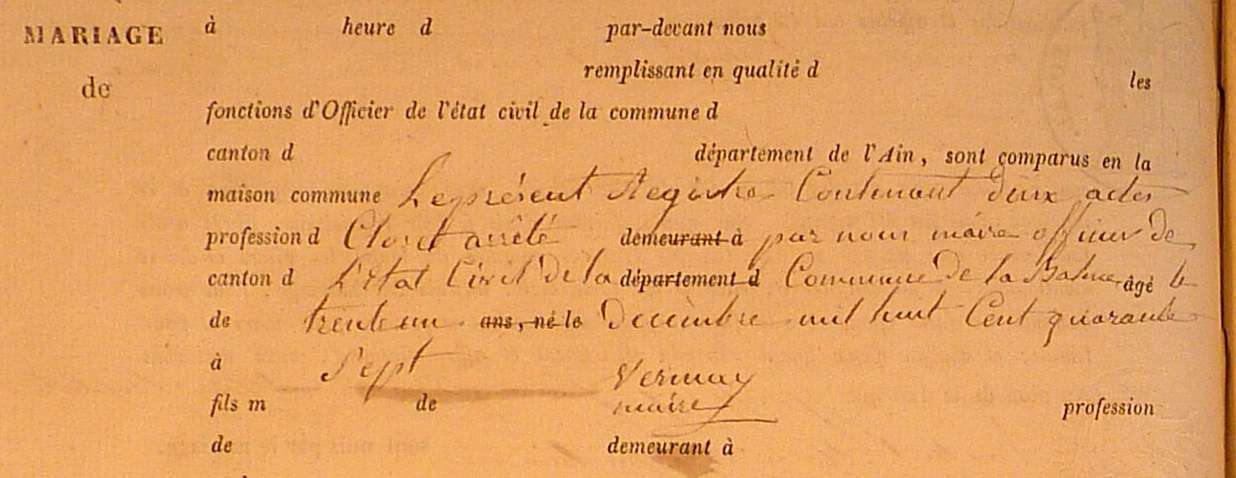 MARIAGE à heure d par-devant nous
de remplissant en qualité d les
fonctions d'Officier de l'état civil de la commune d
canton d département de l'Ain, sont comparus en la
maison commune Le présent Registre Contenant deux actes
profession d Clos et arrêté demeurant à par nous maire officier de
canton d L'Etat Civil de la département d Commune de la Balme âgé le
de trente un ans, né le Decembre mil huit Cent quarante
à Sept Vermay
fils m de maire profession
de demeurant à